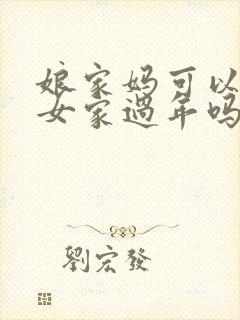 娘家妈可以
女家过年吗
劉宏發